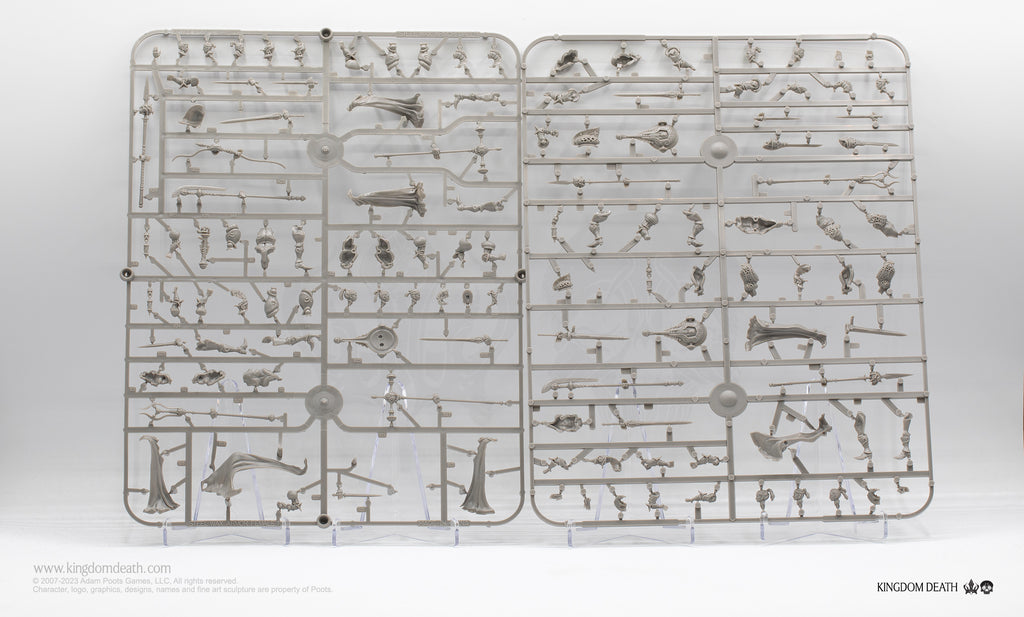 www.kingdomdeath.com
© 2007-2023 Adam Poots Games, LLC, All rights reserved.
Character, logo, graphics, designs, names and fine art sculpture are property of Poots.
KINGDOM DEATH